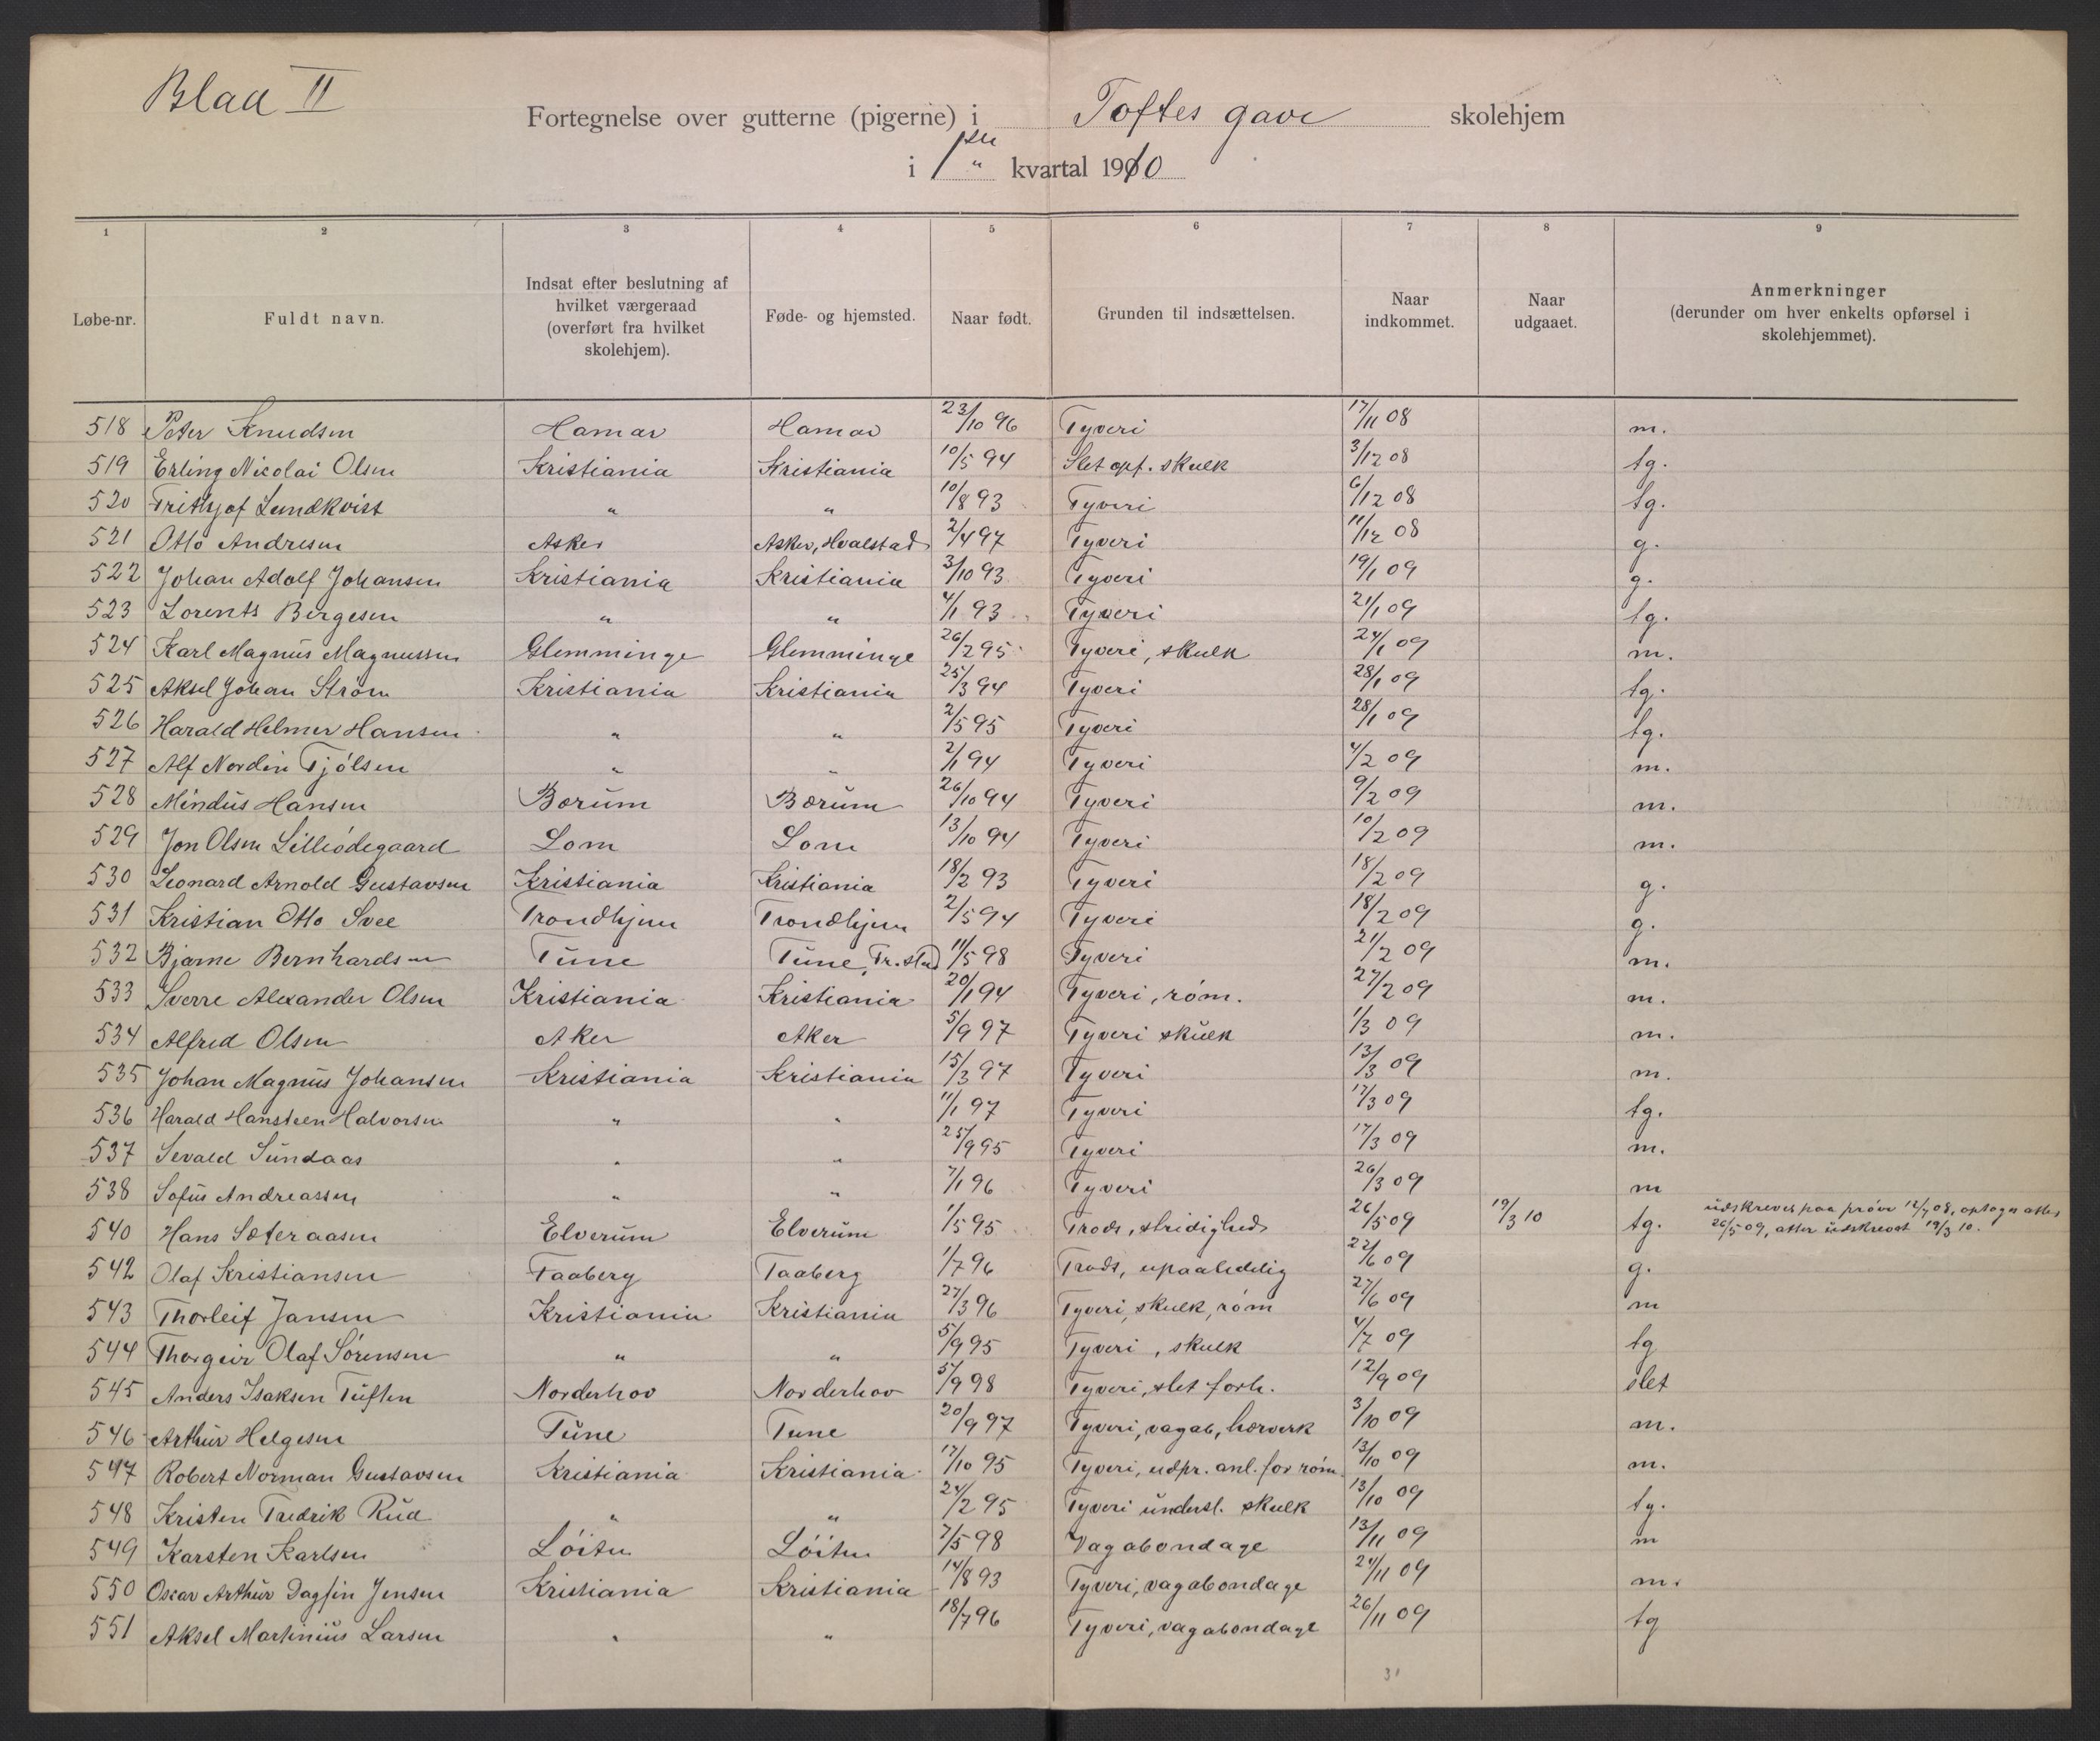 Blad II
Fortegnelse over gutterne (pigerne) i Toftes gave skolehjem
i 1ste kvartal 1910
1 2 3 4 5 6 7 8 9
Løbe-nr. Fuldt navn. Indsat efter beslutning af hvilket værgeraad (overført fra hvilket skolehjem). Føde- og hjemsted. Naar født. Grunden til indsættelsen. Naar indkommet. Naar udgaaet. Anmerkninger (derunder om hver enkelts opførsel i skolehjemmet).
518 Peter Knudsen Hamar Hamar 23/10 96 Tyveri 17/11 08 m.
519 Erling Nicolai Olsen Kristiania Kristiania 10/5 94 Slet opf. skulk 3/12 08 tg.
520 Frithjof Lundkvist " " 10/8 93 Tyveri 6/12 08 tg.
521 Otto Andresen Asker Asker, Hvalstad 2/4 97 Tyveri 11/12 08 g.
522 Johan Adolf Johansen Kristiania Kristiania 3/10 93 Tyveri 19/1 09 g.
523 Lorents Bergesen " " 4/1 93 Tyveri 21/1 09 tg.
524 Karl Magnus Magnussen Glemminge Glemminge 26/2 95 Tyveri, skulk 24/1 09 m.
525 Aksel Johan Strøm Kristiania Kristiania 25/3 94 Tyveri 28/1 09 tg.
526 Harald Helmer Hansen " " 2/5 95 Tyveri 28/1 09 tg.
527 Alf Nordin Tjølsen " " 2/1 94 Tyveri 4/2 09 m.
528 Mindus Hansen Bærum Bærum 26/10 94 Tyveri 9/2 09 m.
529 Jon Olsen Lilleødegaard Lom Lom 13/10 94 Tyveri 10/2 09 m.
530 Leonard Arnold Gustavsen Kristiania Kristiania 18/2 93 Tyveri 18/2 09 g.
531 Kristian Otto Svee Trondhjem Trondhjem 2/5 94 Tyveri 18/2 09 g.
532 Bjarne Bernhardsen Tune Tune, Fr.stad 11/5 98 Tyveri 21/2 09 m.
533 Sverre Alexander Olsen Kristiania Kristiania 20/1 94 Tyveri, røm. 27/2 09 m.
534 Alfred Olsen Aker Aker 5/9 97 Tyveri skulk 1/3 09 m.
535 Johan Magnus Johansen Kristiania Kristiania 15/3 97 Tyveri 13/3 09 m.
536 Harald Hansteen Halvorsen " " 11/1 97 Tyveri 17/3 09 tg.
537 Sevald Sundaas " " 25/9 95 Tyveri 17/3 09 m.
538 Sofus Andreassen " " 7/1 96 Tyveri 26/3 09 m
540 Hans Sæteraasen Elverum Elverum 1/5 95 Trods, stridighed 26/5 09 19/3 10 tg. udskreves paa prøve 12/7 08, optages atter
26/5 09, atter udskrevet 19/3 10.
542 Olaf Kristiansen Faaberg Faaberg 1/7 96 Trods, upaalidelig 22/6 09 g.
543 Thorleif Jansen Kristiania Kristiania 27/3 96 Tyveri, skulk, røm 27/6 09 m
544 Thorgeir Olaf Sørensen " " 5/9 95 Tyveri, skulk 4/7 09 tg
545 Anders Isaksen Tuften Norderhov Norderhov 5/9 98 Tyveri, slet forh. 12/9 09 slet
546 Arthur Helgesen Tune Tune 20/9 97 Tyveri, vagab, hærverk 3/10 09 m.
547 Robert Norman Gustavsen Kristiania Kristiania 17/10 95 Tyveri, udpr. anl. for røm. 13/10 09 m.
548 Kristen Fredrik Rud " " 24/2 95 Tyveri undersl. skulk 13/10 09 tg.
549 Karsten Karlsen Løiten Løiten 7/5 98 Vagabondage 13/11 09 m
550 Oscar Arthur Dagfin Jensen Kristiania Kristiania 14/8 93 Tyveri, vagabondage 24/11 09 m.
551 Aksel Martinius Larsen " " 18/7 96 Tyveri, vagabondage 26/11 09 tg
31